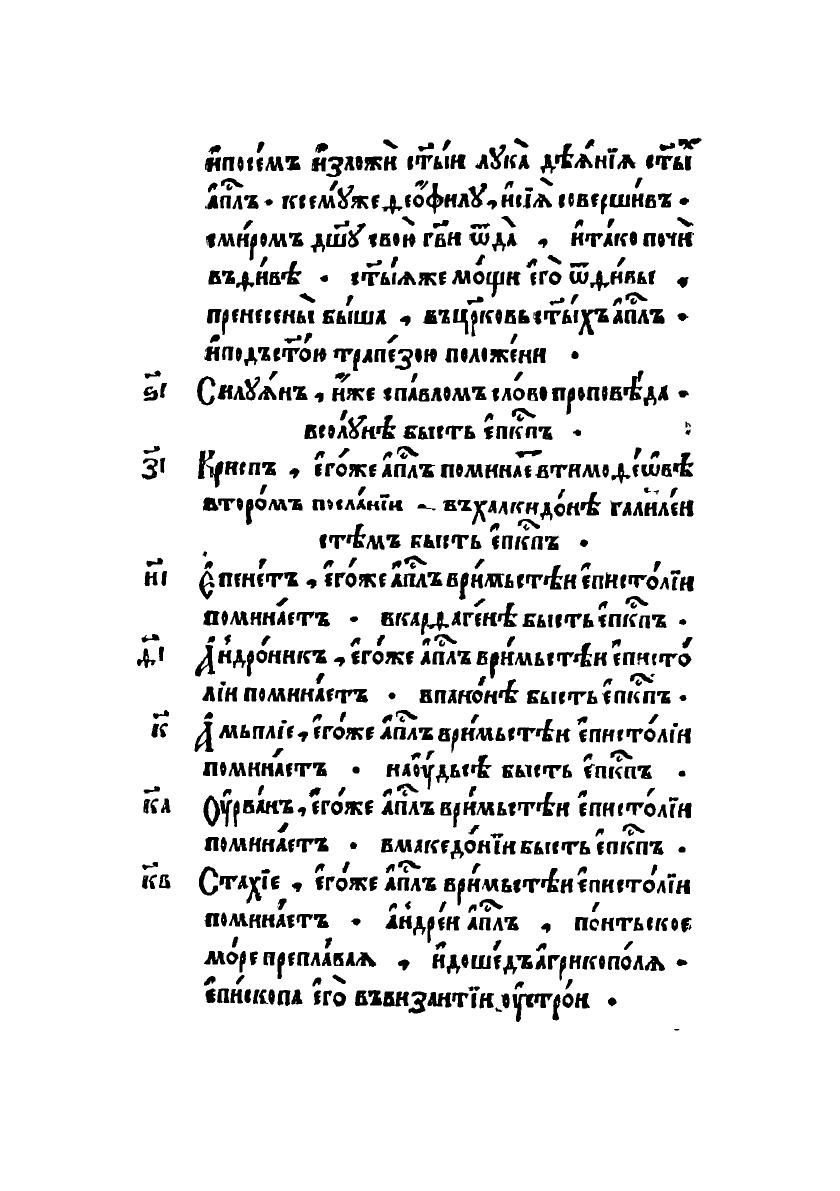 и҆посе́мъ и҆зложѝ ст҃ы́и лука̀ дѣѧ́нїѧ ст҃ы́х
а҆пⷭ҇лъ · ксемꙋ́же ѳео́филꙋ , и҆сїѧ̀ соверши́въ ·
сми́ромъ дш҃ꙋ свою̀ гв҃и ѿда̀ , и҆та́ко почѝ
въѳи́вѣ · ст҃ы́ѧже мо́щи є҆го̀ ѿѳи́вы ,
пренесены̀ бы́ша , въцр҃ковь ст҃ы́хъ а҆пⷭ҇лъ ·
и҆подъст҃о́ю трапе́зою положе́ни ·
ѕ҃і Силꙋѧ́нъ , и҆́же спа́вломъ сло́во проповѣ́да ·
всолꙋ́нѣ бысть є҆пⷭ҇кпъ ·
з҃і Криспъ , є҆го́же а҆пⷭ҇лъ помина́е втимоѳе́ѡвѣ
второ́мъ посла́нїи · въхалкидо́нѣ галиле́и
стѣмъ бысть є҆пⷭ҇кпъ ·
и҃і Є҆пене́тъ , є҆го́же а҆пⷭ҇лъври́мьстѣи є҆писто́лїи
помина́етъ · вкарѳаге́нѣ бысть є҆пⷭ҇кпъ ·
ѳ҃і А҆ндро́никъ , є҆го́же а҆пⷭ҇лъ ври́мьстѣи є҆писто́
лїи помина́етъ · впано́нѣ бысть є҆пⷭ҇кпъ ·
к҃ А҆мьплїе , є҆го́же а҆пⷭ҇лъ ври́мьстѣи є҆писто́лїи
помина́етъ · наѻу́дьсѣ бысть є҆пⷭ҇кпъ ·
к҃а Оу҆рва́нъ , є҆го́же а҆пⷭ҇лъ ври́мьстѣи є҆писто́лїи
помина́етъ · вмакедо́нїи бысть є҆пⷭ҇кпъ ·
к҃в Стахїе , є҆го́же а҆пⷭ҇лъ ври́мьстѣи є҆писто́лїи
помина́етъ · а҆ндре́и а҆пⷭ҇лъ , по́нтьское
мо́ре препла́ваѧ , и҆доше́дъ а҆грикопо́лѧ ·
є҆пи́скопа є҆го̀ въвизанті́и оу҆стро́и ·